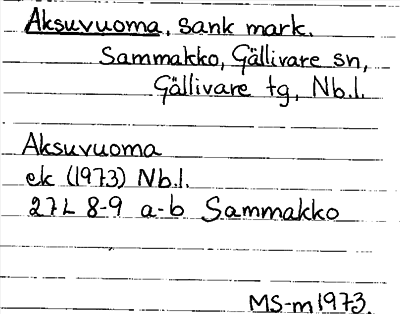 Aksuvuoma, sank mark.
Sammakko, Gällivare sn,
Gällivare tg, Nb.l.
Aksuvuoma
ek (1973) Nb.l.
27L 8-9 a-b Sammakko
MS-m 1973.